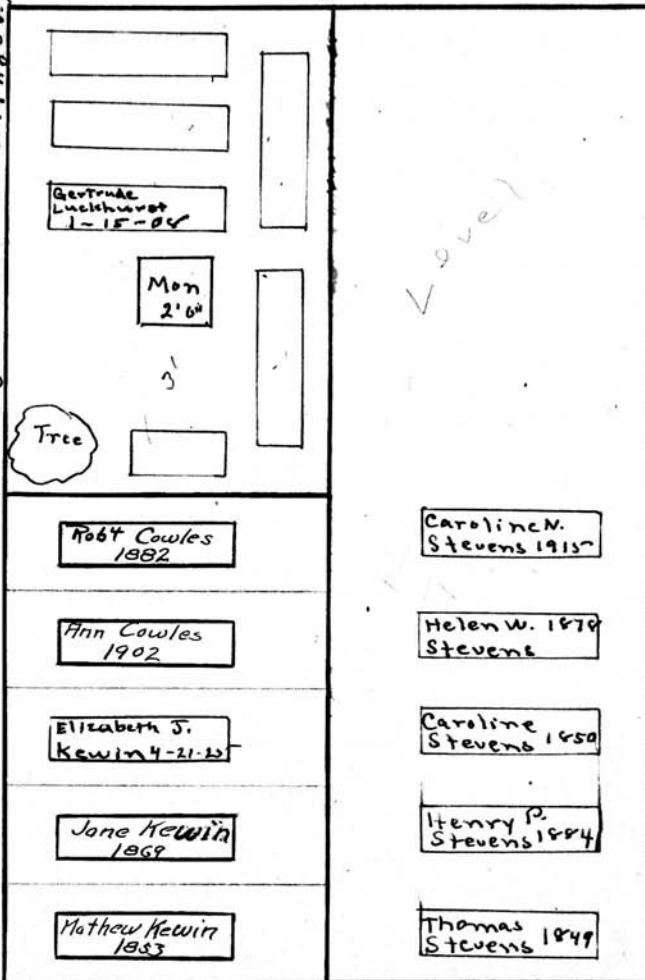 Gertrude
Luckhurst
1-15-08
Mon
2'6"
3'
Tree
Level
Robt Cowles
1882
Ann Cowles
1902
Elizabeth J.
Kewin 4-21-25
Jane Kewin
1869
Mathew Kewin
1853
Caroline N.
Stevens 1915
Helen W. 1878
Stevens
Caroline
Stevens 1850
Henry P.
Stevens 1884
Thomas
Stevens 1849